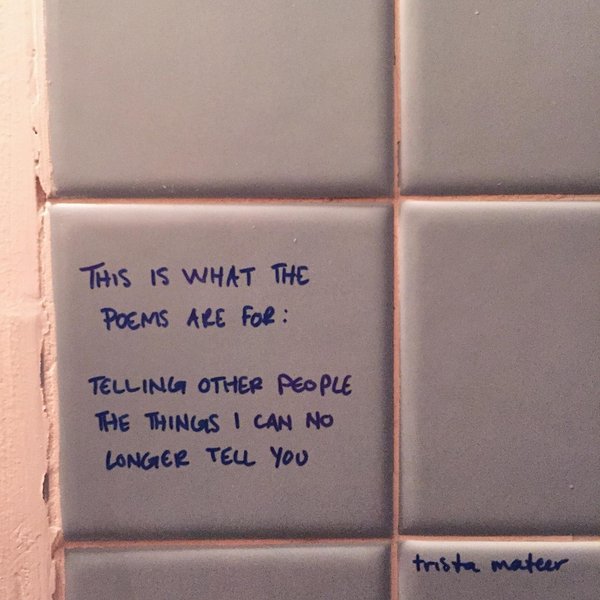 THIS IS WHAT THE
POEMS ARE FOR:
TELLING OTHER PEOPLE
THE THINGS I CAN NO
LONGER TELL YOU
trista mateer